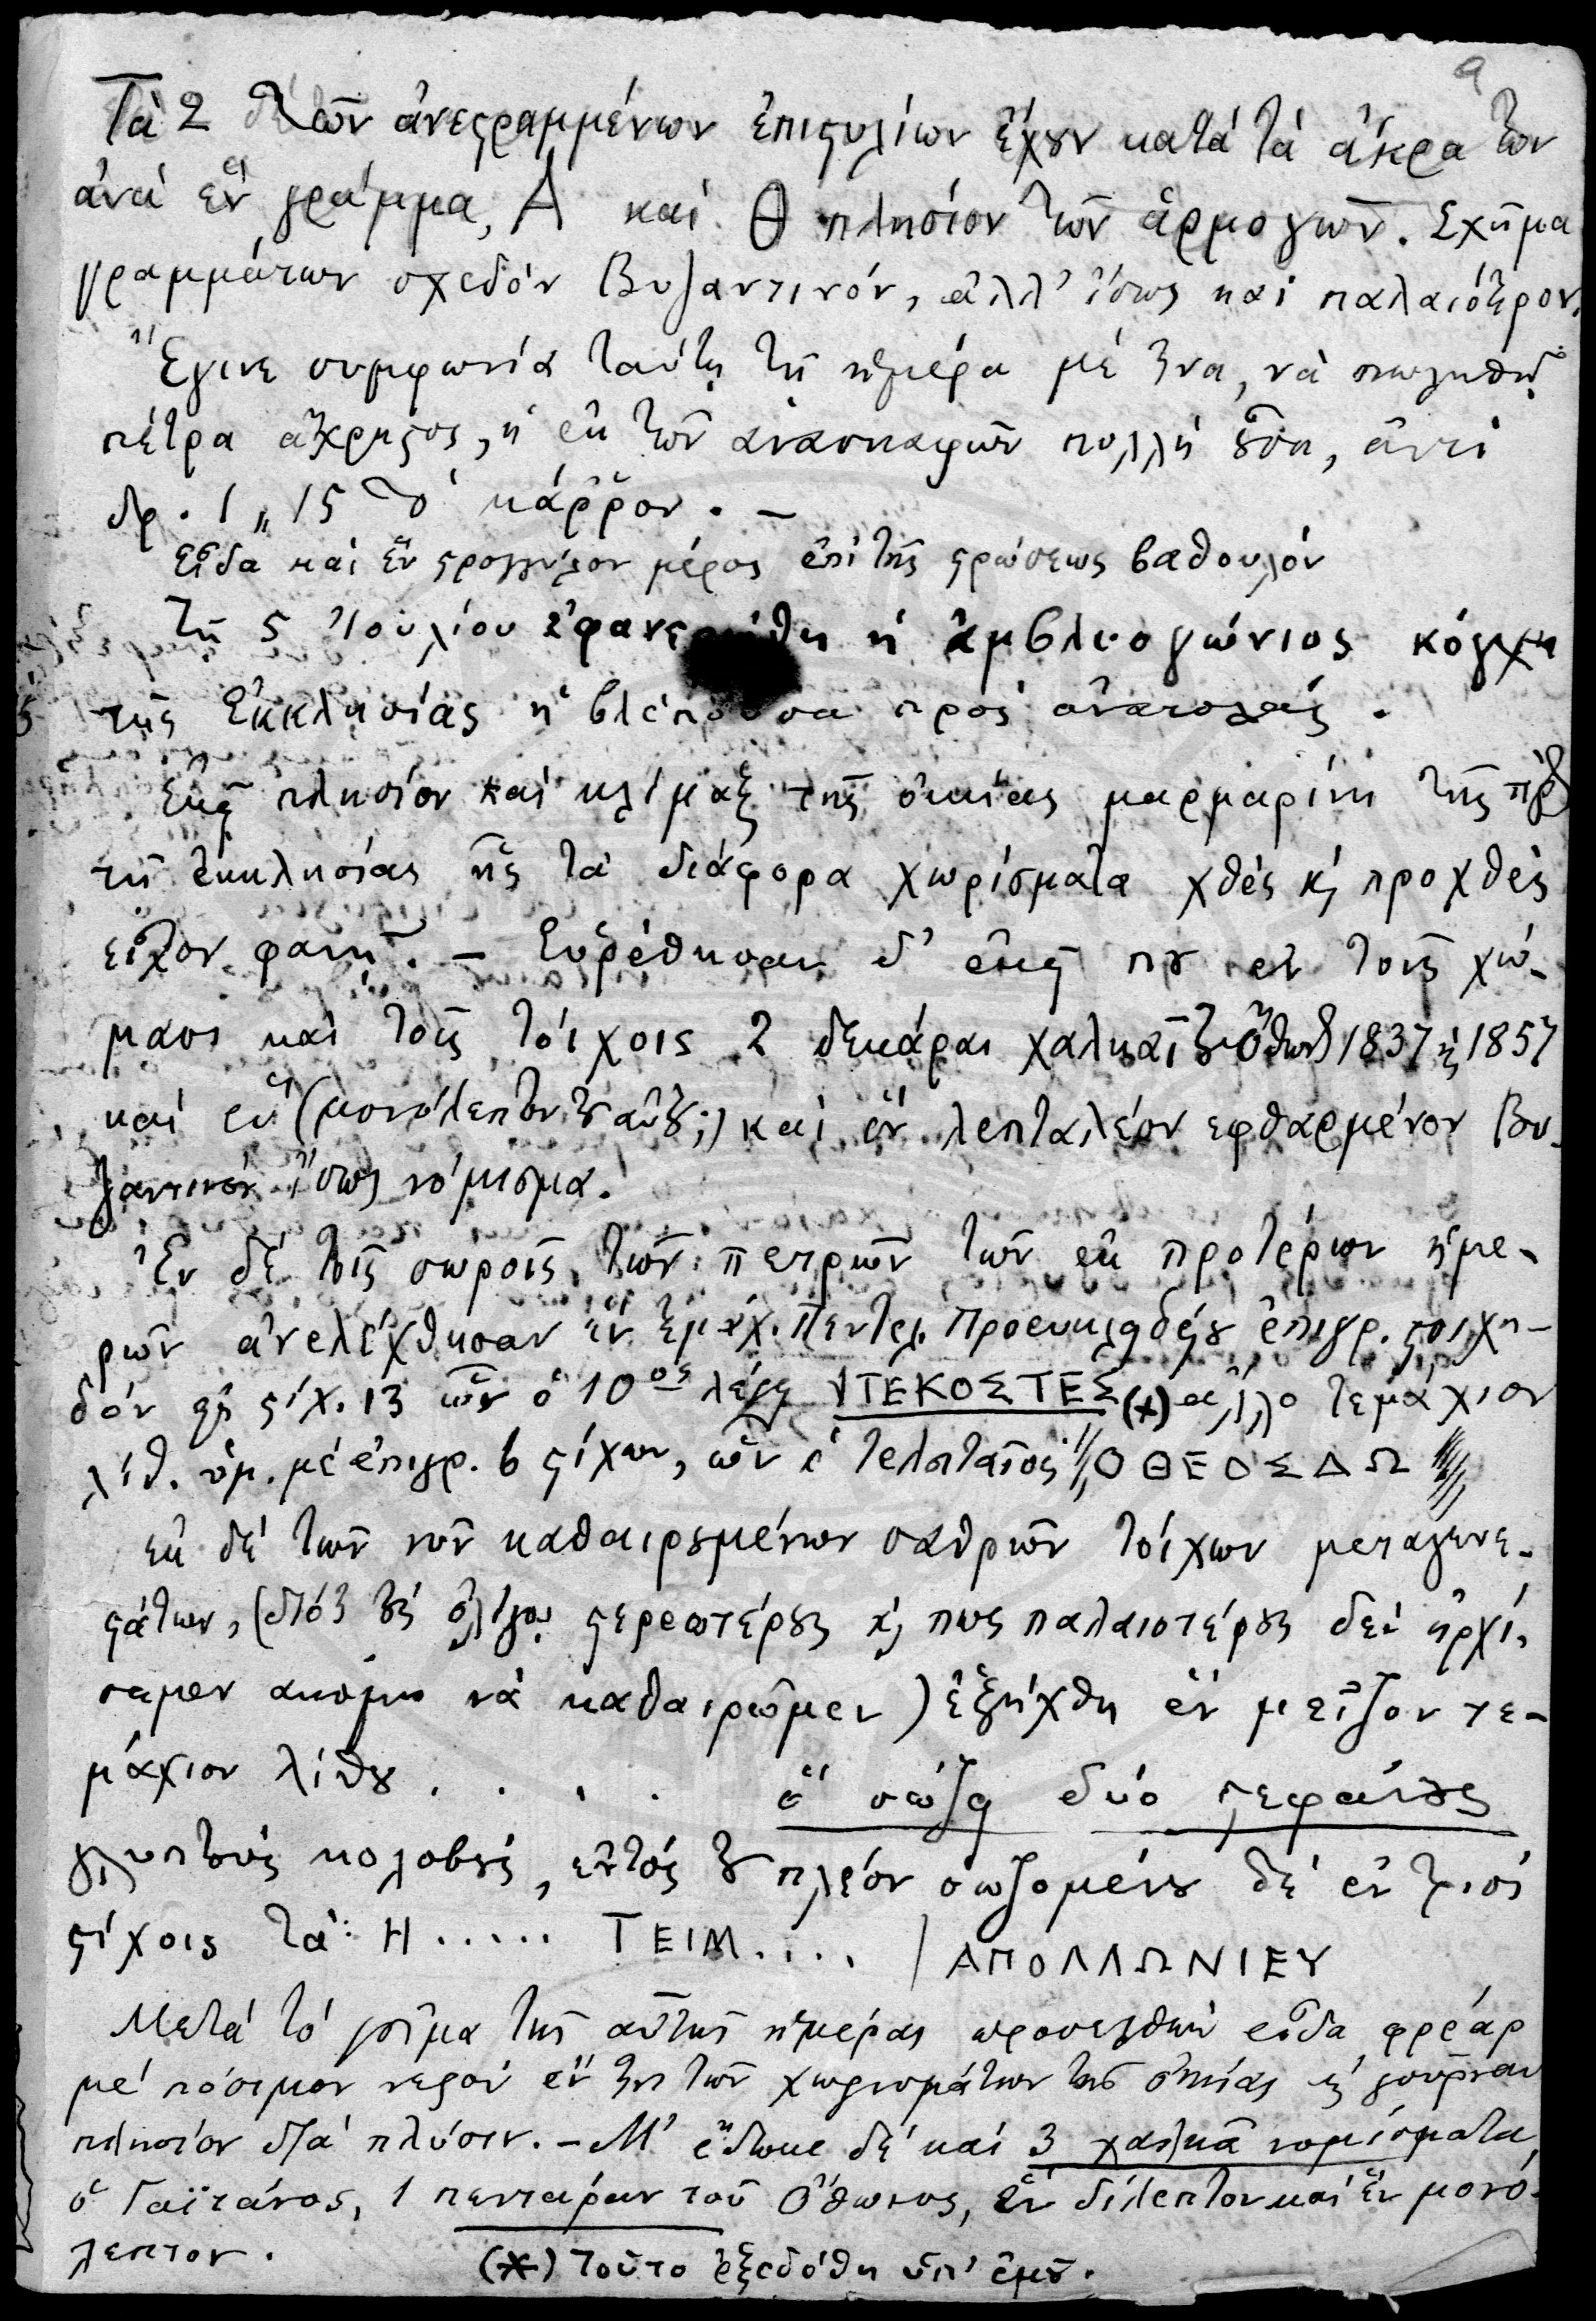 Τὰ 2 τῶν ἀνεστραμμένων ἐπιστυλίων ἔχουν κατὰ τὰ ἄκρα των
ἀνὰ ἓν γράμμα, Α καὶ Θ πλησίον τῶν ἁρμογῶν. Σχῆμα
γραμμάτων σχεδὸν Βυζαντινόν, ἀλλ' ἴσως καὶ παλαιότερον.
Ἔγινε συμφωνία ταύτῃ τῇ ἡμέρᾳ μὲ ἕνα, νὰ πωληθῇ
πέτρα ἄχρηστος, ἡ ἐκ τῶν ἀνασκαφῶν πολλὴ οὖσα, ἀντὶ
δρ. 1,,15 τὸ κάρρον. –
εἶδα καὶ ἓν στρογγύλον μέρος ἐπὶ τῆς στρώσεως βαθουλόν
Τῇ 5 Ἰουλίου ἐφανερώθη ἡ ἀμβλυογώνιος κόγχη
τῆς Ἐκκλησίας ἡ βλέπουσα πρὸς ἀνατολάς.
Ἐκεῖ πλησίον καὶ κλίμαξ τῆς οἰκίας μαρμαρίνη τῆς
τῆς ἐκκλησίας ἧς τὰ διάφορα χωρίσματα χθὲς κ̀ προχθὲς
εἶχον φανῆ. – Εὑρέθησαν δ' ἐκεῖ που ἐν τοῖς χώ-
μασι καὶ τοῖς τοίχοις 2 δεκάραι χαλκαῖ τοῦ Ὄθωνος 1837 κ̀ 1857
καὶ ἓν (μονόλεπτον τοῦ αὐτοῦ;) καὶ ἓν λεπταλέον ἐφθαρμένον Βυ-
ζαντινὸν ἴσως νόμισμα.
Ἐν δὲ τοῖς σωροῖς τῶν πετρῶν τῶν ἐκ προτέρων ἡμε-
ρῶν ἀνελέχθησαν ἓν τεμάχ. Πεντελ. Προευκλειδείου ἐπιγρ. στοιχη-
δὸν στίχ. 13 ὧν ὁ 10ος λέγει ΝΤΕΚΟΣΤΕΣ (*) ἄλλο τεμάχιον
λίθ. ὁμ. μὲ ἐπιγρ. 6 στίχων, ὧν ὁ τελευταῖος Ο ΘΕΟΣΔΩ
ἐκ δὲ τῶν νῦν καθαιρουμένων σαθρῶν τοίχων μεταγενε-
στάτων, (διότι τοὺς ὀλίγον στερεωτέρους κ̀ πως παλαιοτέρους δὲν ἠρχί-
σαμεν ἀκόμη νὰ καθαιρῶμεν) ἐξήχθη ἓν μεῖζον τε-
μάχιον λίθου . . . . ὃ σώζει δύο στεφάνους
γλυπτοὺς κολοβούς, ἐντὸς τοῦ πλέον σωζομένου δὲ ἐν τρισὶ
στίχοις τά: Η ..... ΤΕΙΜ .... / ΑΠΟΛΛΩΝΙΕΥ
Μετὰ τὸ γεῦμα τῆς αὐτῆς ἡμέρας προσελθὼν εἶδα φρέαρ
μὲ πόσιμον νερὸν ἔν τινι τῶν χωρισμάτων τῆς οἰκίας κ̀ γούρναν
πλησίον διὰ πλύσιν. – Μ' ἔδωκε δὲ καὶ 3 χαλκᾶ νομίσματα
ὁ Γαϊτάνος, 1 πενταράν τοῦ Ὄθωνος, ἓν δίλεπτον καὶ ἓν μονό-
λεπτον.
(*) τοῦτο ἐξεδόθη ὑπ' ἐμοῦ.